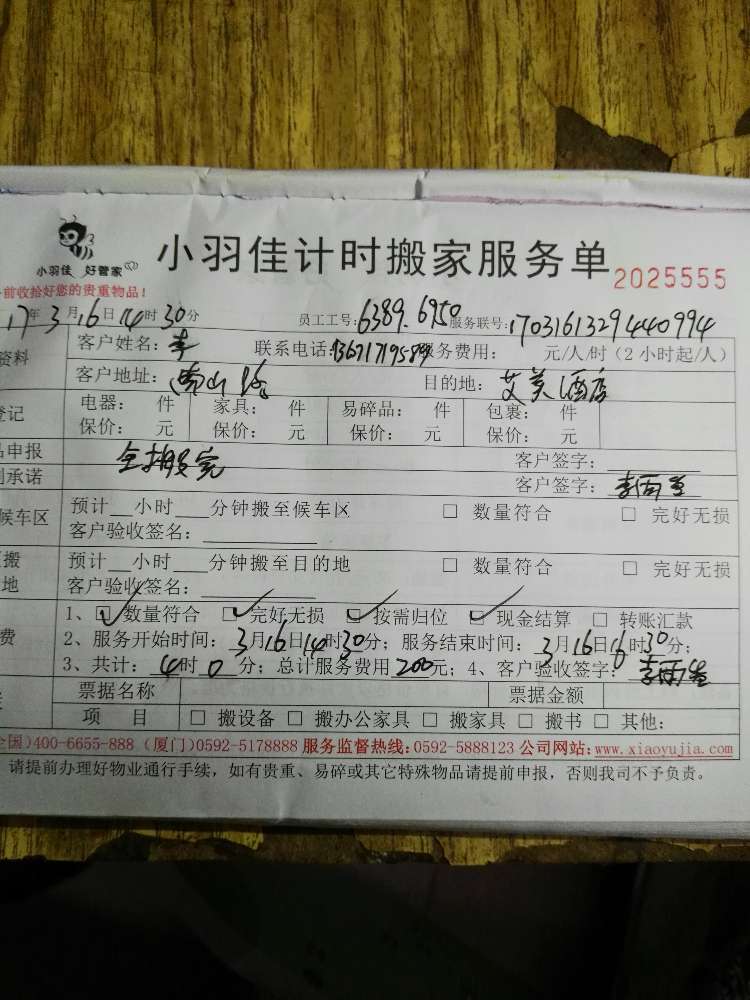 小羽佳 好管家
小羽佳计时搬家服务单 2025555
前收拾好您的贵重物品！
17年3月16日14时30分 员工工号：6389.6950 服务联号：1703161329440994
资料 客户姓名：李 联系电话：13671719584 服务费用： 元/人/时（2小时起/人）
客户地址： 山路 目的地：艾美酒店
登记 电器： 件 家具： 件 易碎品： 件 包裹： 件
保价： 元 保价： 元 保价： 元 保价： 元
品申报 全搬完 客户签字：
承诺 客户签字：李雨
候车区 预计__小时___分钟搬至候车区 □ 数量符合 □ 完好无损
客户验收签名：
搬 预计__小时___分钟搬至目的地 □ 数量符合 □ 完好无损
地 客户验收签名：
1、☑ 数量符合 ☑ 完好无损 ☑ 按需归位 ☑ 现金结算 □ 转账汇款
费 2、服务开始时间：3月16日14时30分；服务结束时间：3月16日16时30分；
3、共计：4时0分；总计服务费用200元；4、客户验收签字：李雨
票据名称 票据金额
项 目 □ 搬设备 □ 搬办公家具 □ 搬家具 □ 搬书 □ 其他：
全国）400-6655-888（厦门）0592-5178888 服务监督热线：0592-5888123 公司网站：www.xiaoyujia.com
请提前办理好物业通行手续，如有贵重、易碎或其它特殊物品请提前申报，否则我司不予负责。